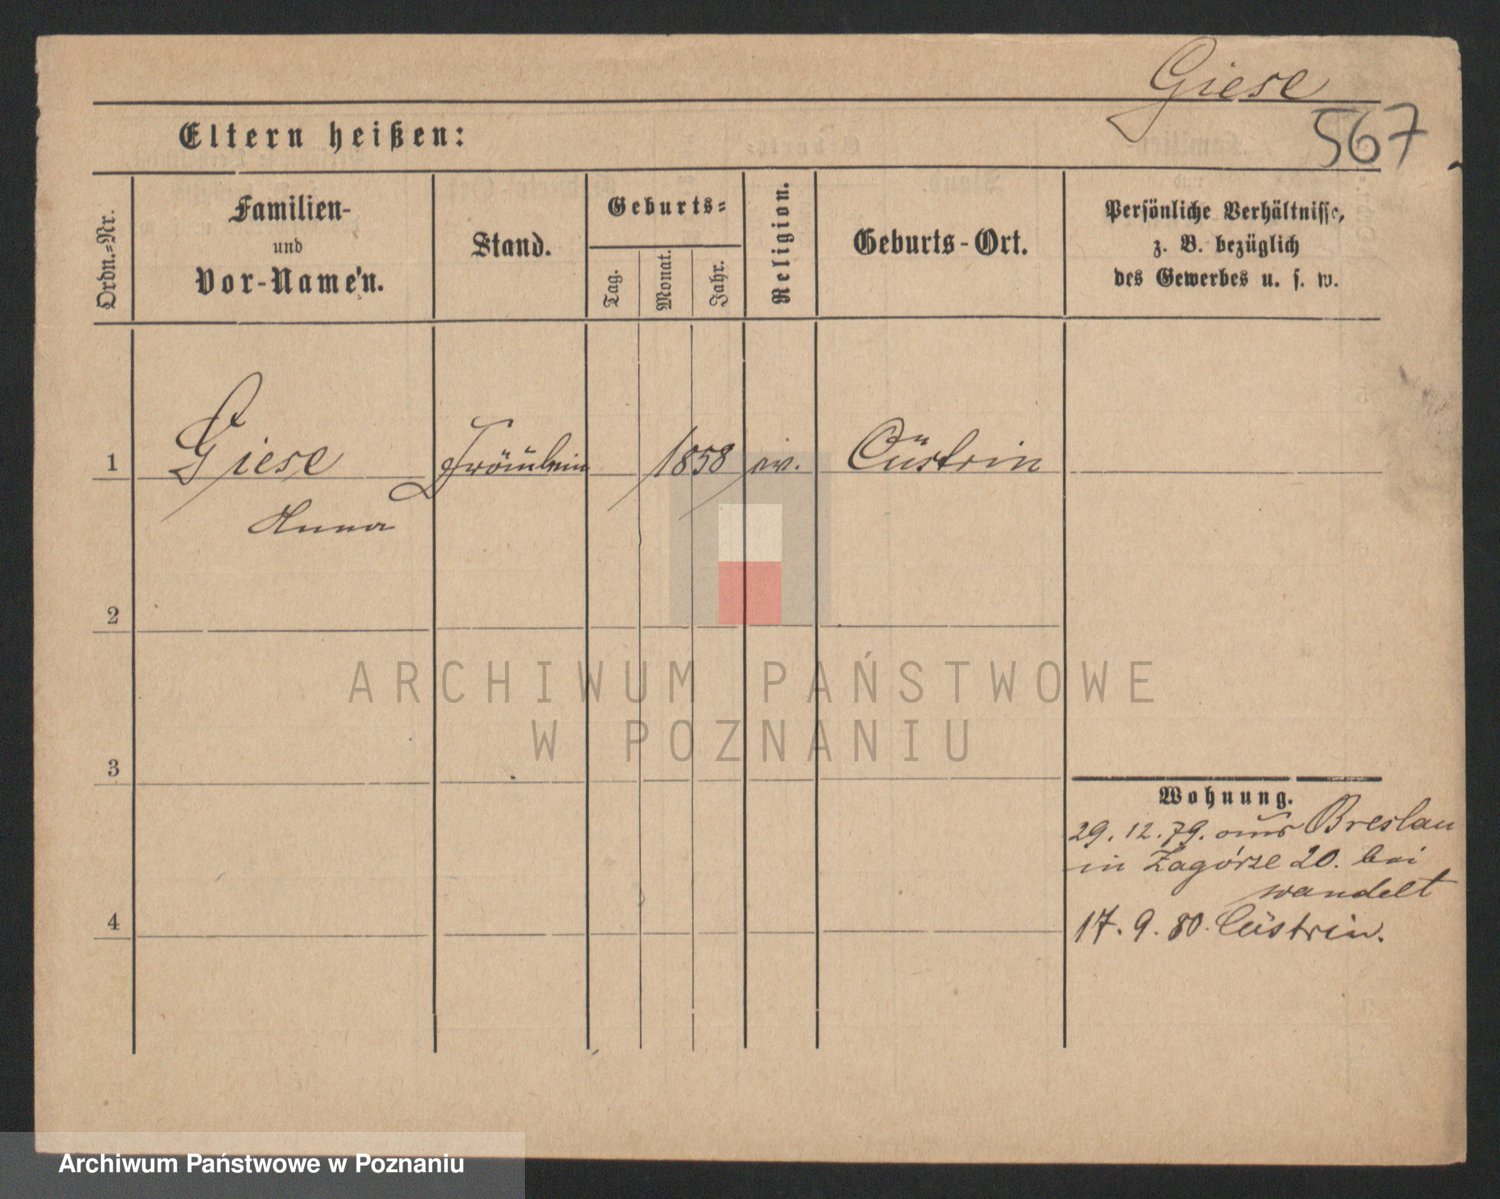 Giese
567
Eltern heißen:
Ordn.-Nr.
Familien-
und
Vor-Name'n.
Stand.
Geburts-
Tag.
Monat.
Jahr.
Religion.
Geburts-Ort.
Persönliche Verhältnisse,
z. B. bezüglich
des Gewerbes u. s. w.
1 Giese Fräulein 1858 ev. Cüstrin
Anna
2
3
4
Wohnung.
29. 12. 79. aus Breslau
in Zagórze 20. bei
wandelt
17. 9. 80. Cüstrin.
ARCHIWUM PAŃSTWOWE
W POZNANIU
Archiwum Państwowe w Poznaniu